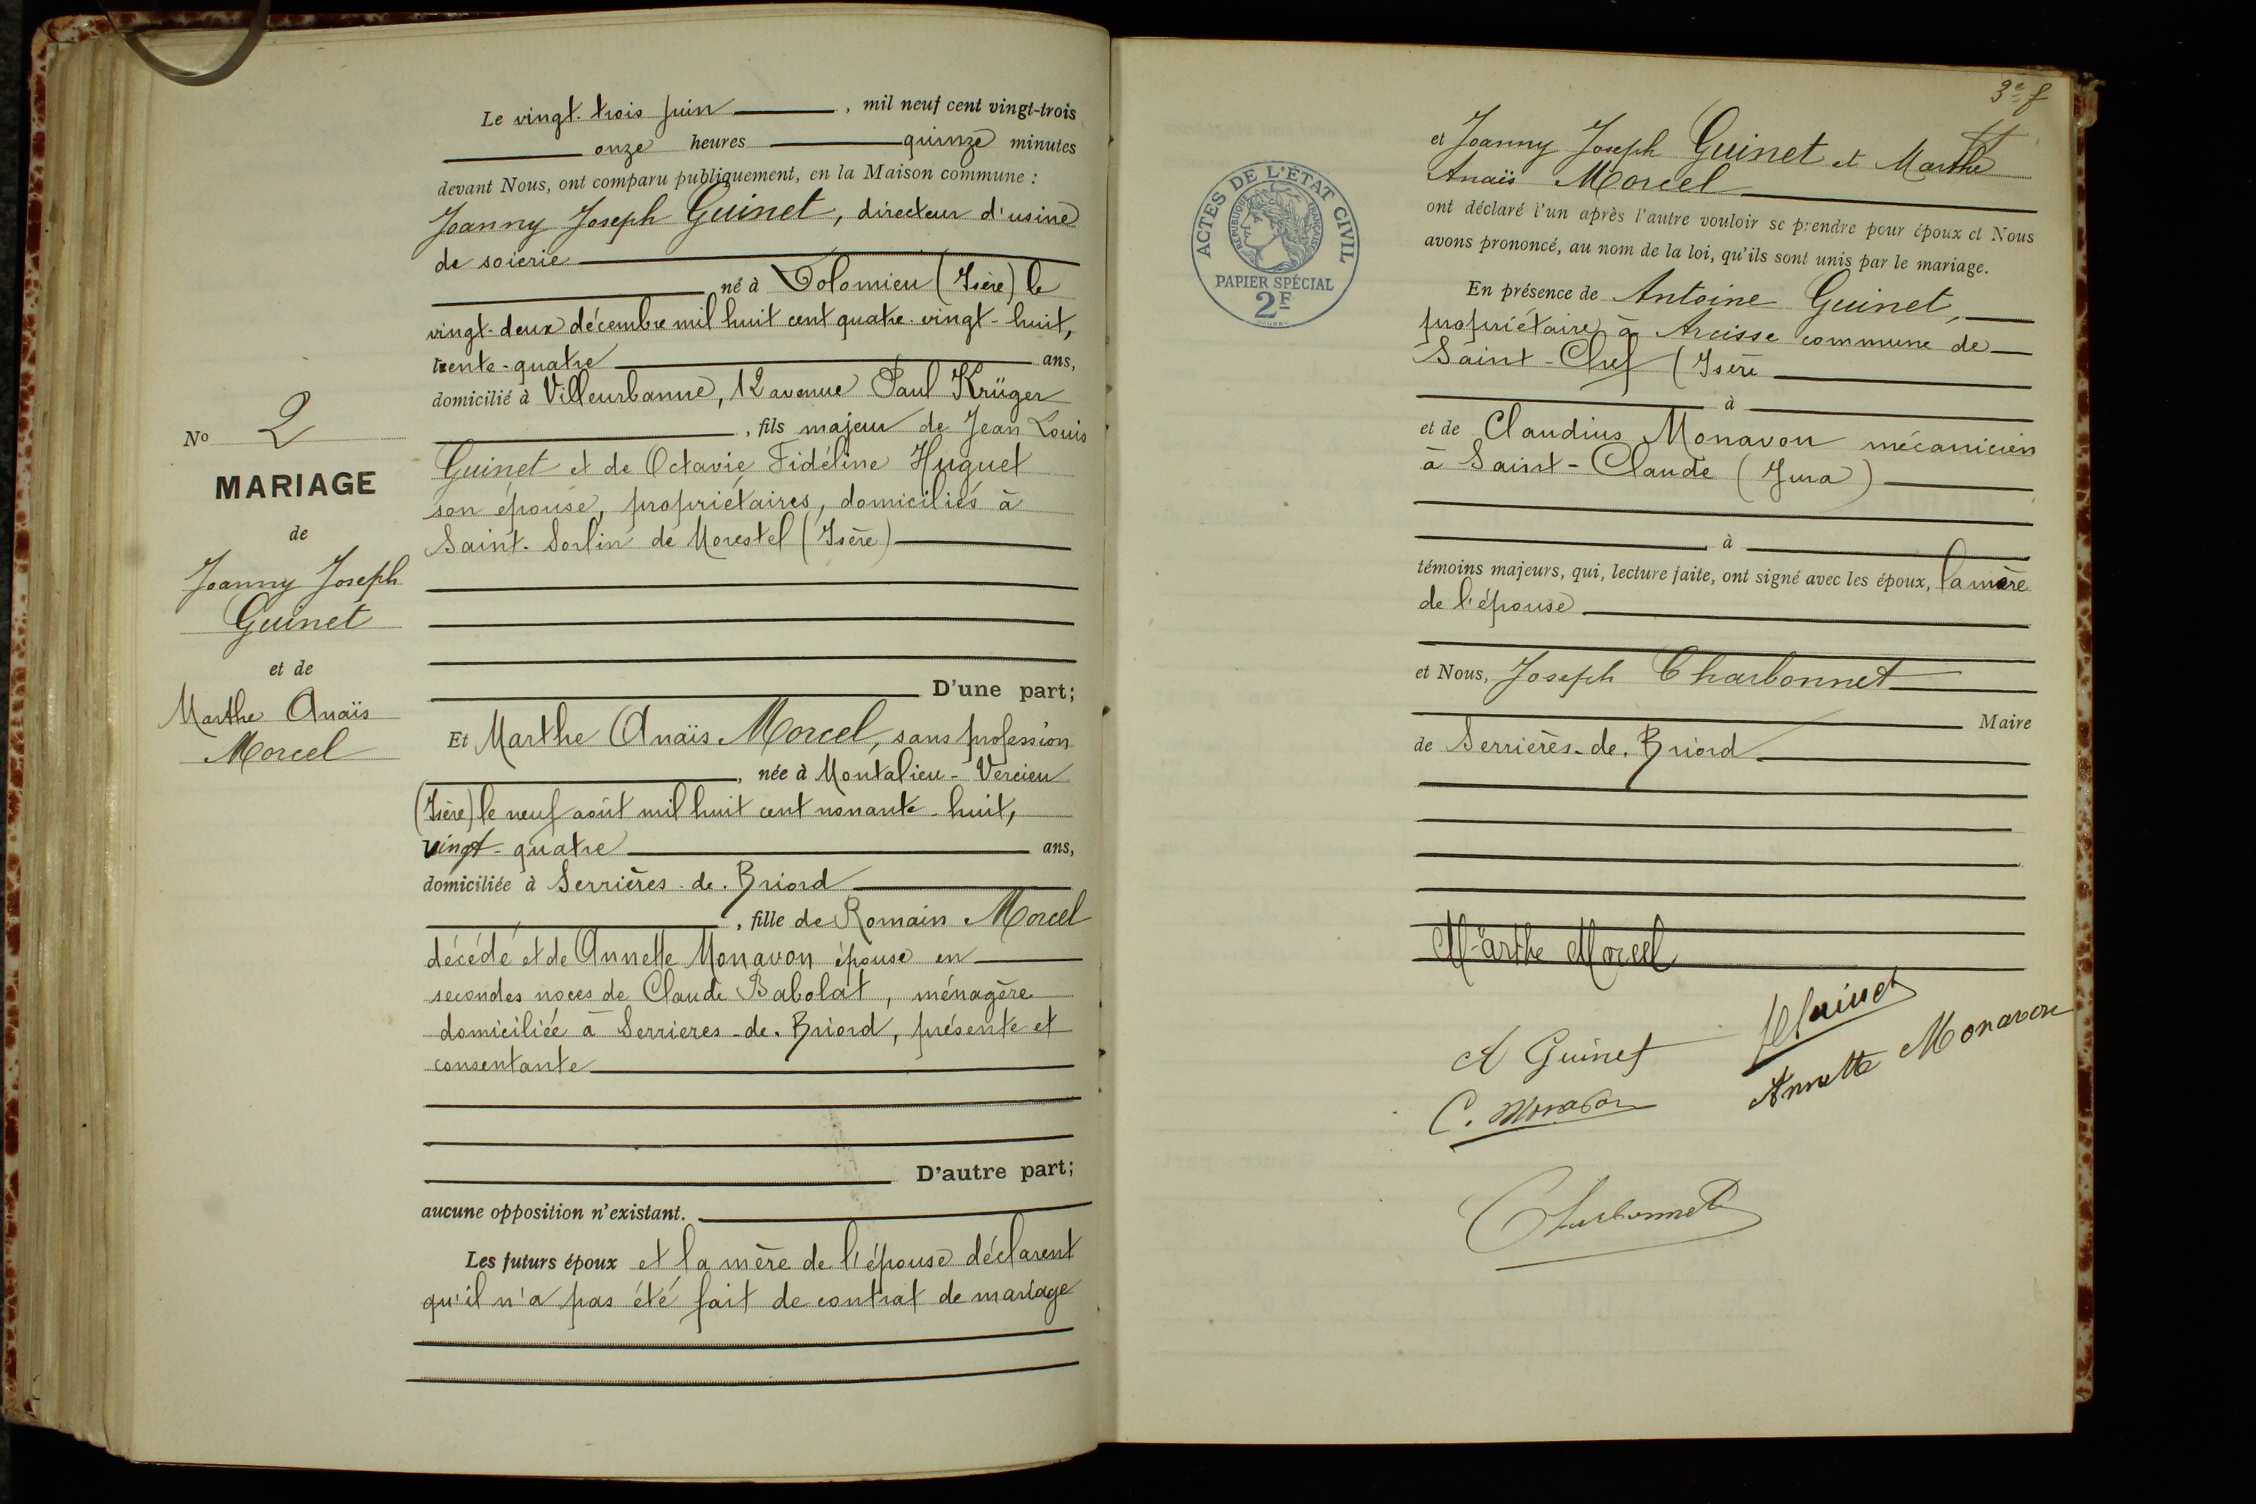 Le vingt-trois juin, mil neuf cent vingt-trois
onze heures quinze minutes
devant Nous, ont comparu publiquement, en la Maison commune :
Joanny Joseph Guinet, directeur d'usine
de soierie
né à Dolomieu (Isère) le
vingt-deux décembre mil huit cent quatre-vingt-huit,
trente-quatre ans,
domicilié à Villeurbanne, 12 avenue Paul Krüger
, fils majeur de Jean Louis
Guinet et de Octavie Fidéline Huguet
son épouse, propriétaires, domiciliés à
Saint-Sorlin de Morestel (Isère)
D'une part;
No 2
MARIAGE
de
Joanny Joseph
Guinet
et de
Marthe Anaïs
Morcel
Et Marthe Anaïs Morcel, sans profession
, née à Montalieu-Vercieu
(Isère) le neuf août mil huit cent nonante-huit,
vingt-quatre ans,
domiciliée à Serrières-de-Briord
, fille de Romain Morcel
décédé et de Annette Monavon épouse en
secondes noces de Claude Babolat, ménagère
domiciliée à Serrieres-de-Briord, présente et
consentante
D'autre part;
aucune opposition n'existant.
Les futurs époux et la mère de l'épouse déclarent
qu'il n'a pas été fait de contrat de mariage
3e f
et Joanny Joseph Guinet et Marthe
Anaïs Morcel
ont déclaré l'un après l'autre vouloir se prendre pour époux et Nous
avons prononcé, au nom de la loi, qu'ils sont unis par le mariage.
En présence de Antoine Guinet,
propriétaire à Arcisse commune de
Saint-Chef (Isère
à
et de Claudius Monavon mécanicien
à Saint-Claude (Jura)
à
témoins majeurs, qui, lecture faite, ont signé avec les époux, la mère
de l'épouse
et Nous, Joseph Charbonnet
Maire
de Serrières-de-Briord
Marthe Morcel
Guinet
A Guinet
Annette Monavon
C. Monavon
Charbonnet
ACTES DE L'ÉTAT CIVIL
RÉPUBLIQUE FRANÇAISE
PAPIER SPÉCIAL
2F